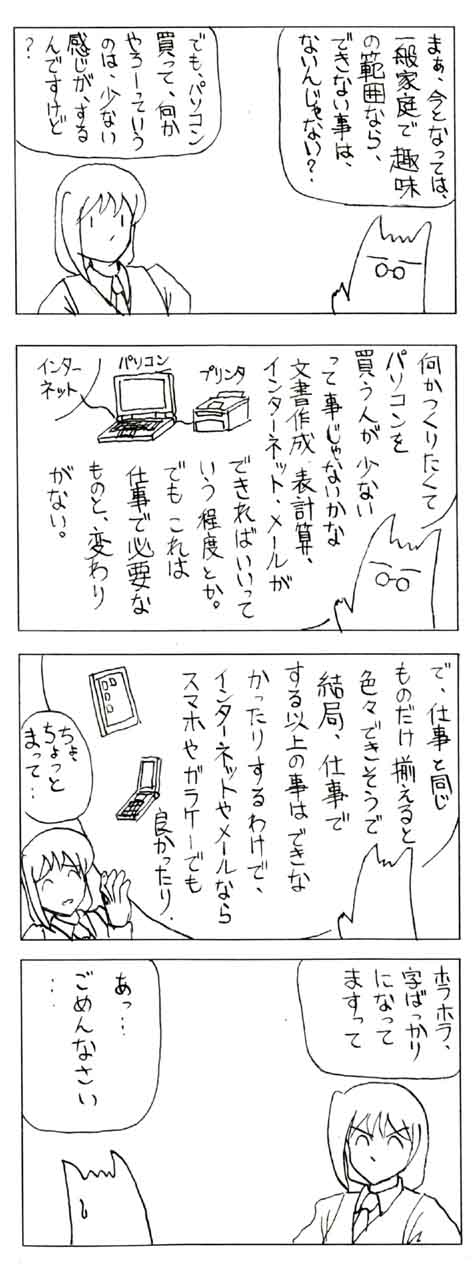 まぁ、今となっては、
一般家庭で趣味
の範囲なら、
できない事は、
ないんじゃ、ない?
でも、パソコン
買って、何か
やろーっていう
のは、少ない
感じが、する
んですけど
?
何かつくりたくて
パソコンを
買う人が少ない
って事じゃないかな
文書作成、表計算、
インターネット・メールが
できればいいって
いう程度とか。
でもこれは
仕事で必要な
ものと、変わり
がない。
プリンタ
パソコン
インター
ネット
で、仕事と同じ
ものだけ揃えると
色々できそうで
結局、仕事で
する以上の事はできな
かったりするわけで、
インターネットやメールなら
スマホやガラケーでも
良かったり.
ちょ
ちょっと
まって…
ホラホラ、
字ばっかり
になって
ますって
あっ…
ごめんなさい
…